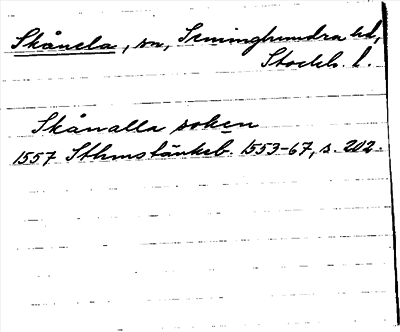 Skånela, sn, Seminghundra hd,
Stockh. l.
Skånalla soken
1557 Sthms tänkeb. 1553-67, s. 202.